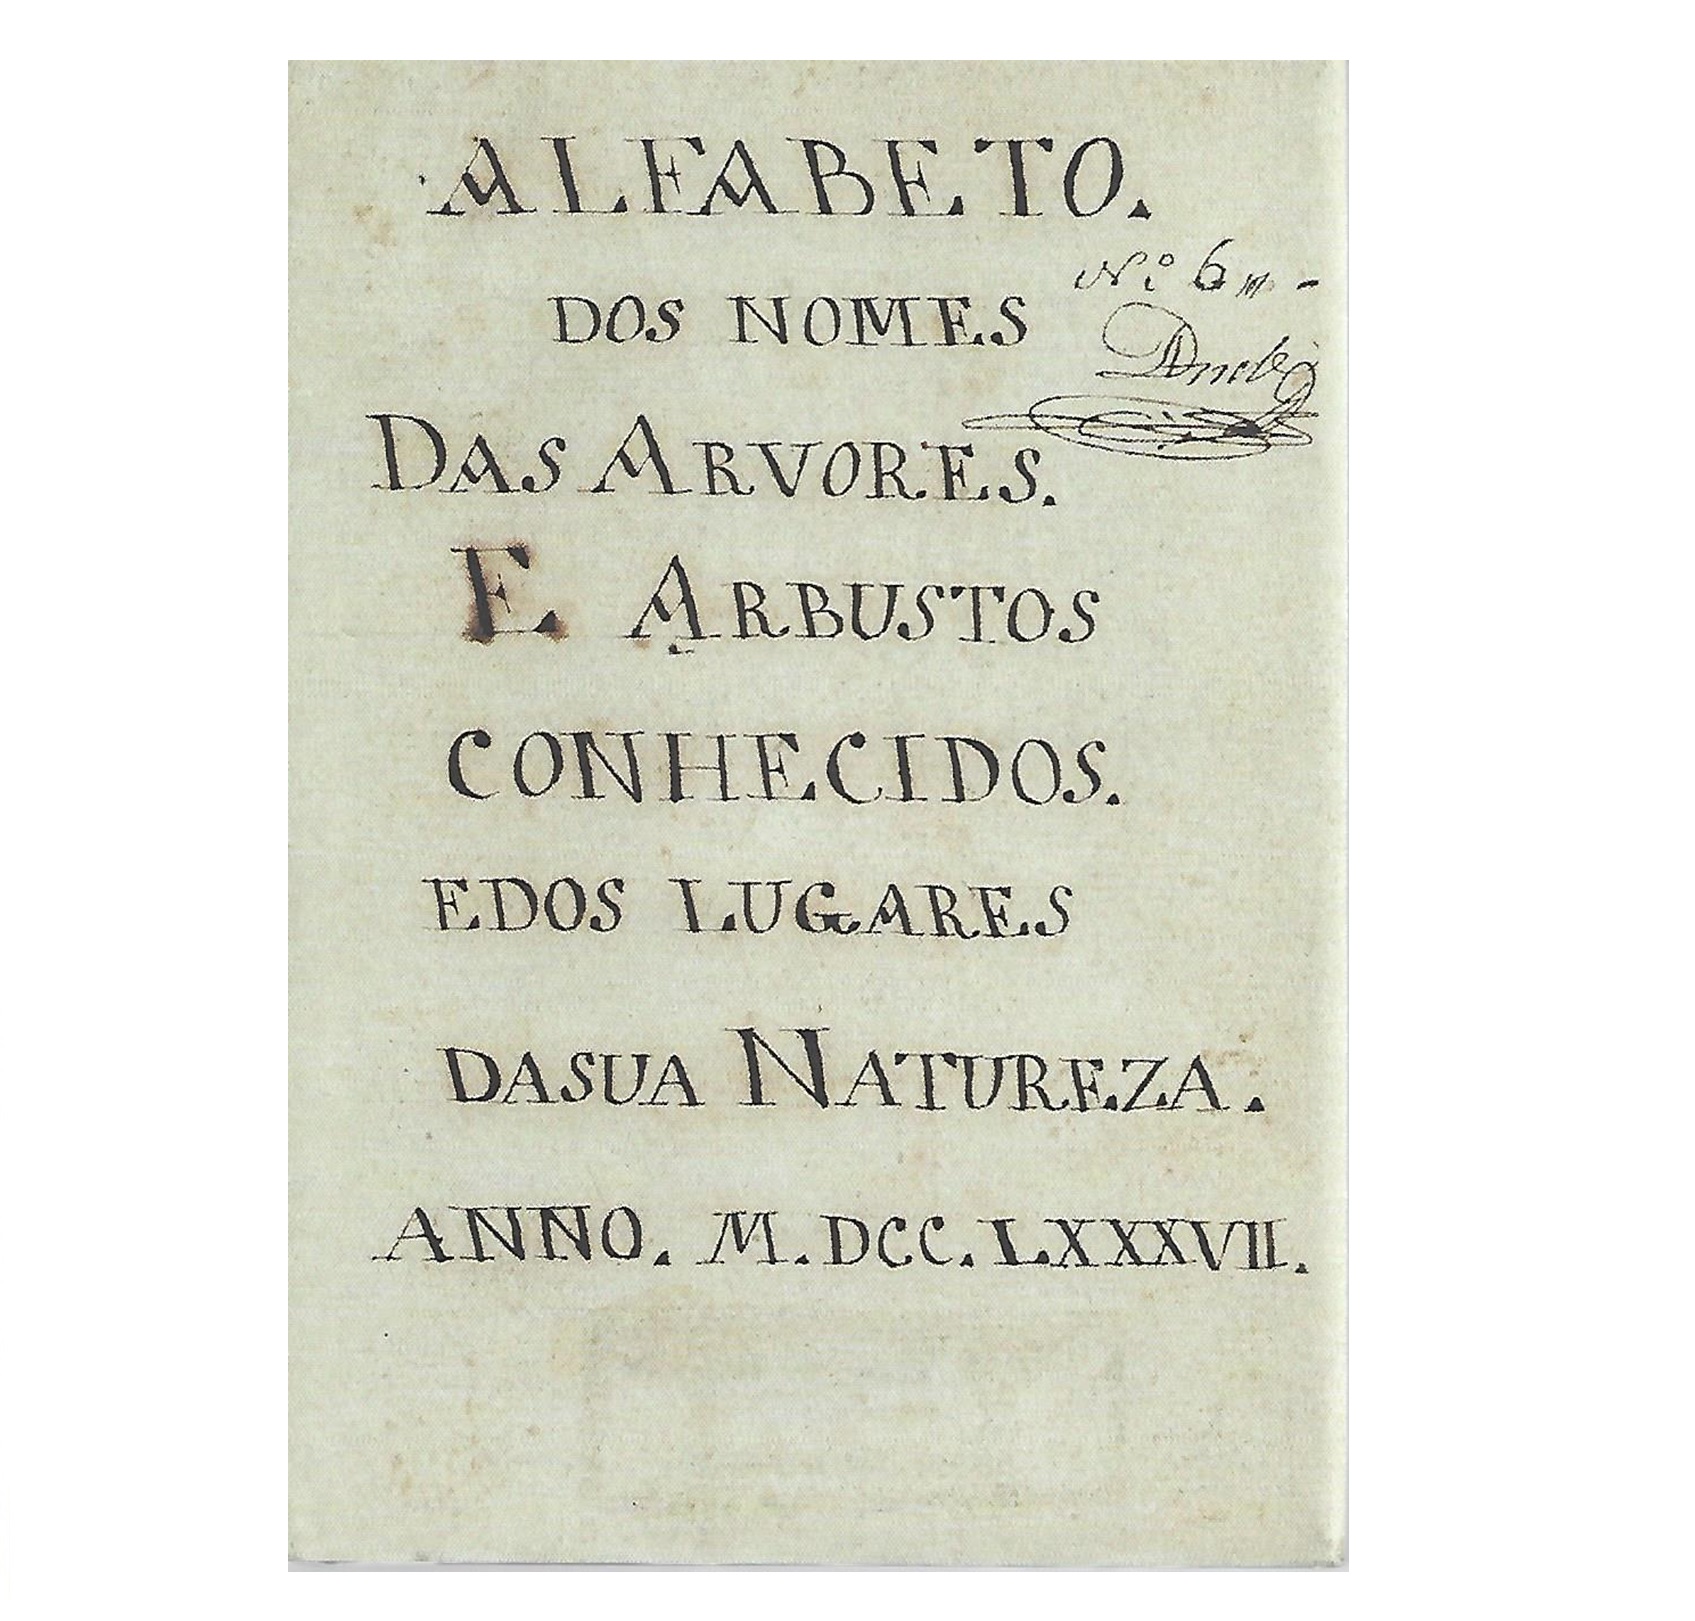 ALFABETO.
DOS NOMES
Nº 6
DAS ARVORES.
E ARBUSTOS
CONHECIDOS.
EDOS LUGARES
DASUA NATUREZA.
ANNO. M.DCC.LXXXVII.